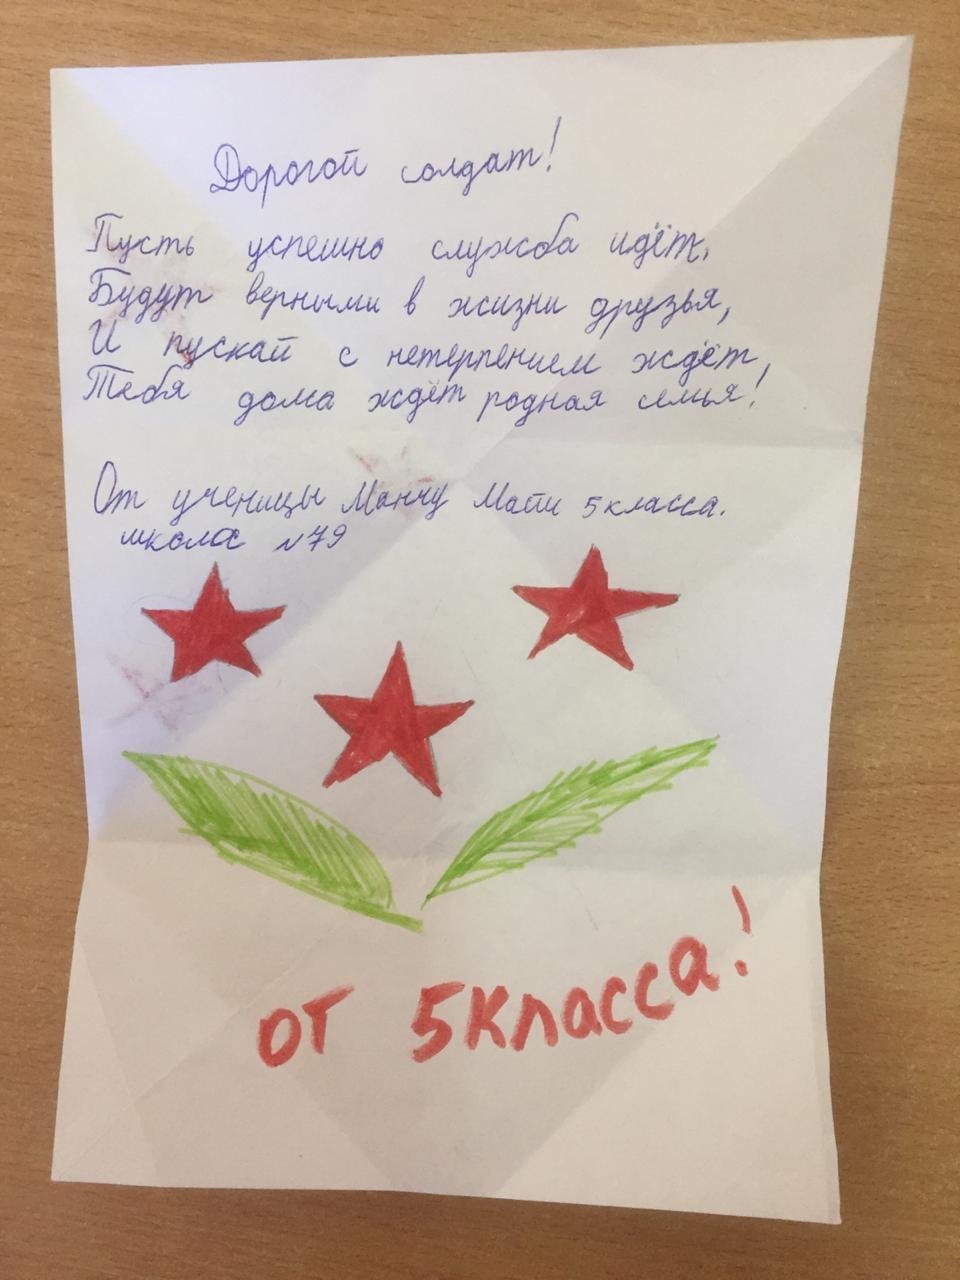 Дорогой солдат!
Пусть успешно служба идёт,
Будут верными в жизни друзья,
И пускай с нетерпением ждёт,
Тебя дома ждёт родная семья!
От ученицы Манчу Мати 5 класса.
школа №79
от 5 класса!